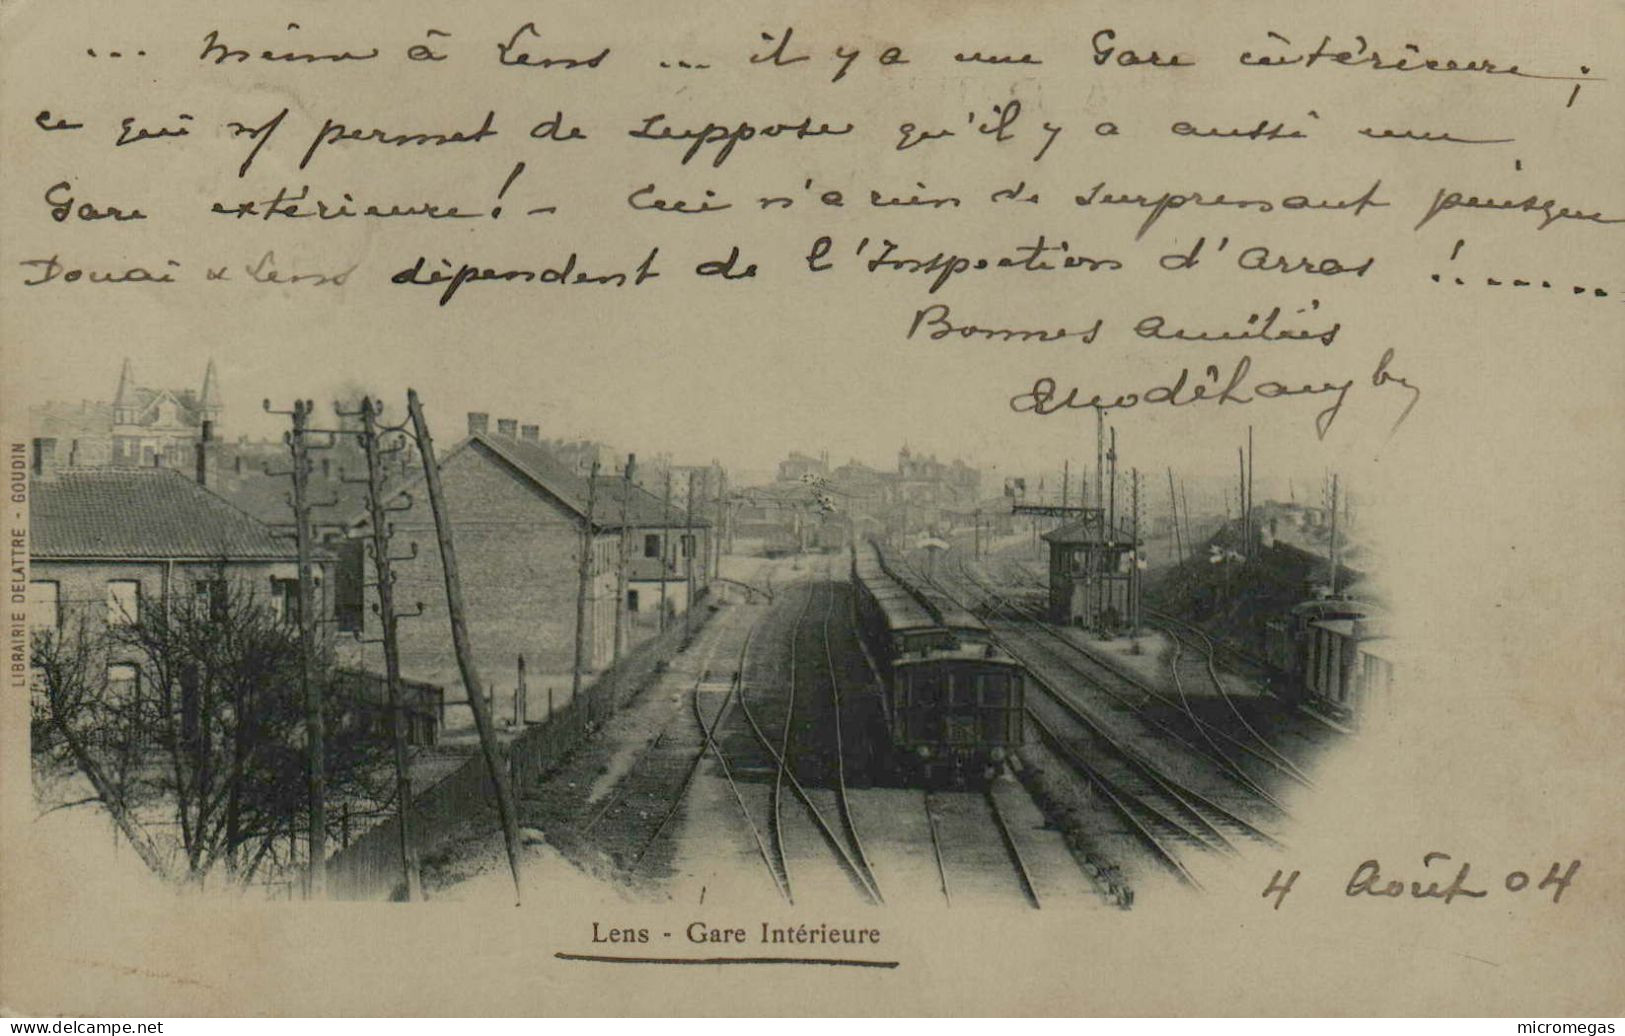 ... Même à Lens ... il y a une Gare intérieure ;
ce qui me permet de supposer qu'il y a aussi une
Gare extérieure ! - Ceci n'a rien de surprenant puisque
Douai & Lens dépendent de l'Inspection d'Arras !.......
Bonnes Amitiés
LIBRAIRIE DELATTRE - GOUDIN
4 Août 04
Lens - Gare Intérieure
www.delcampe.net
micromegas